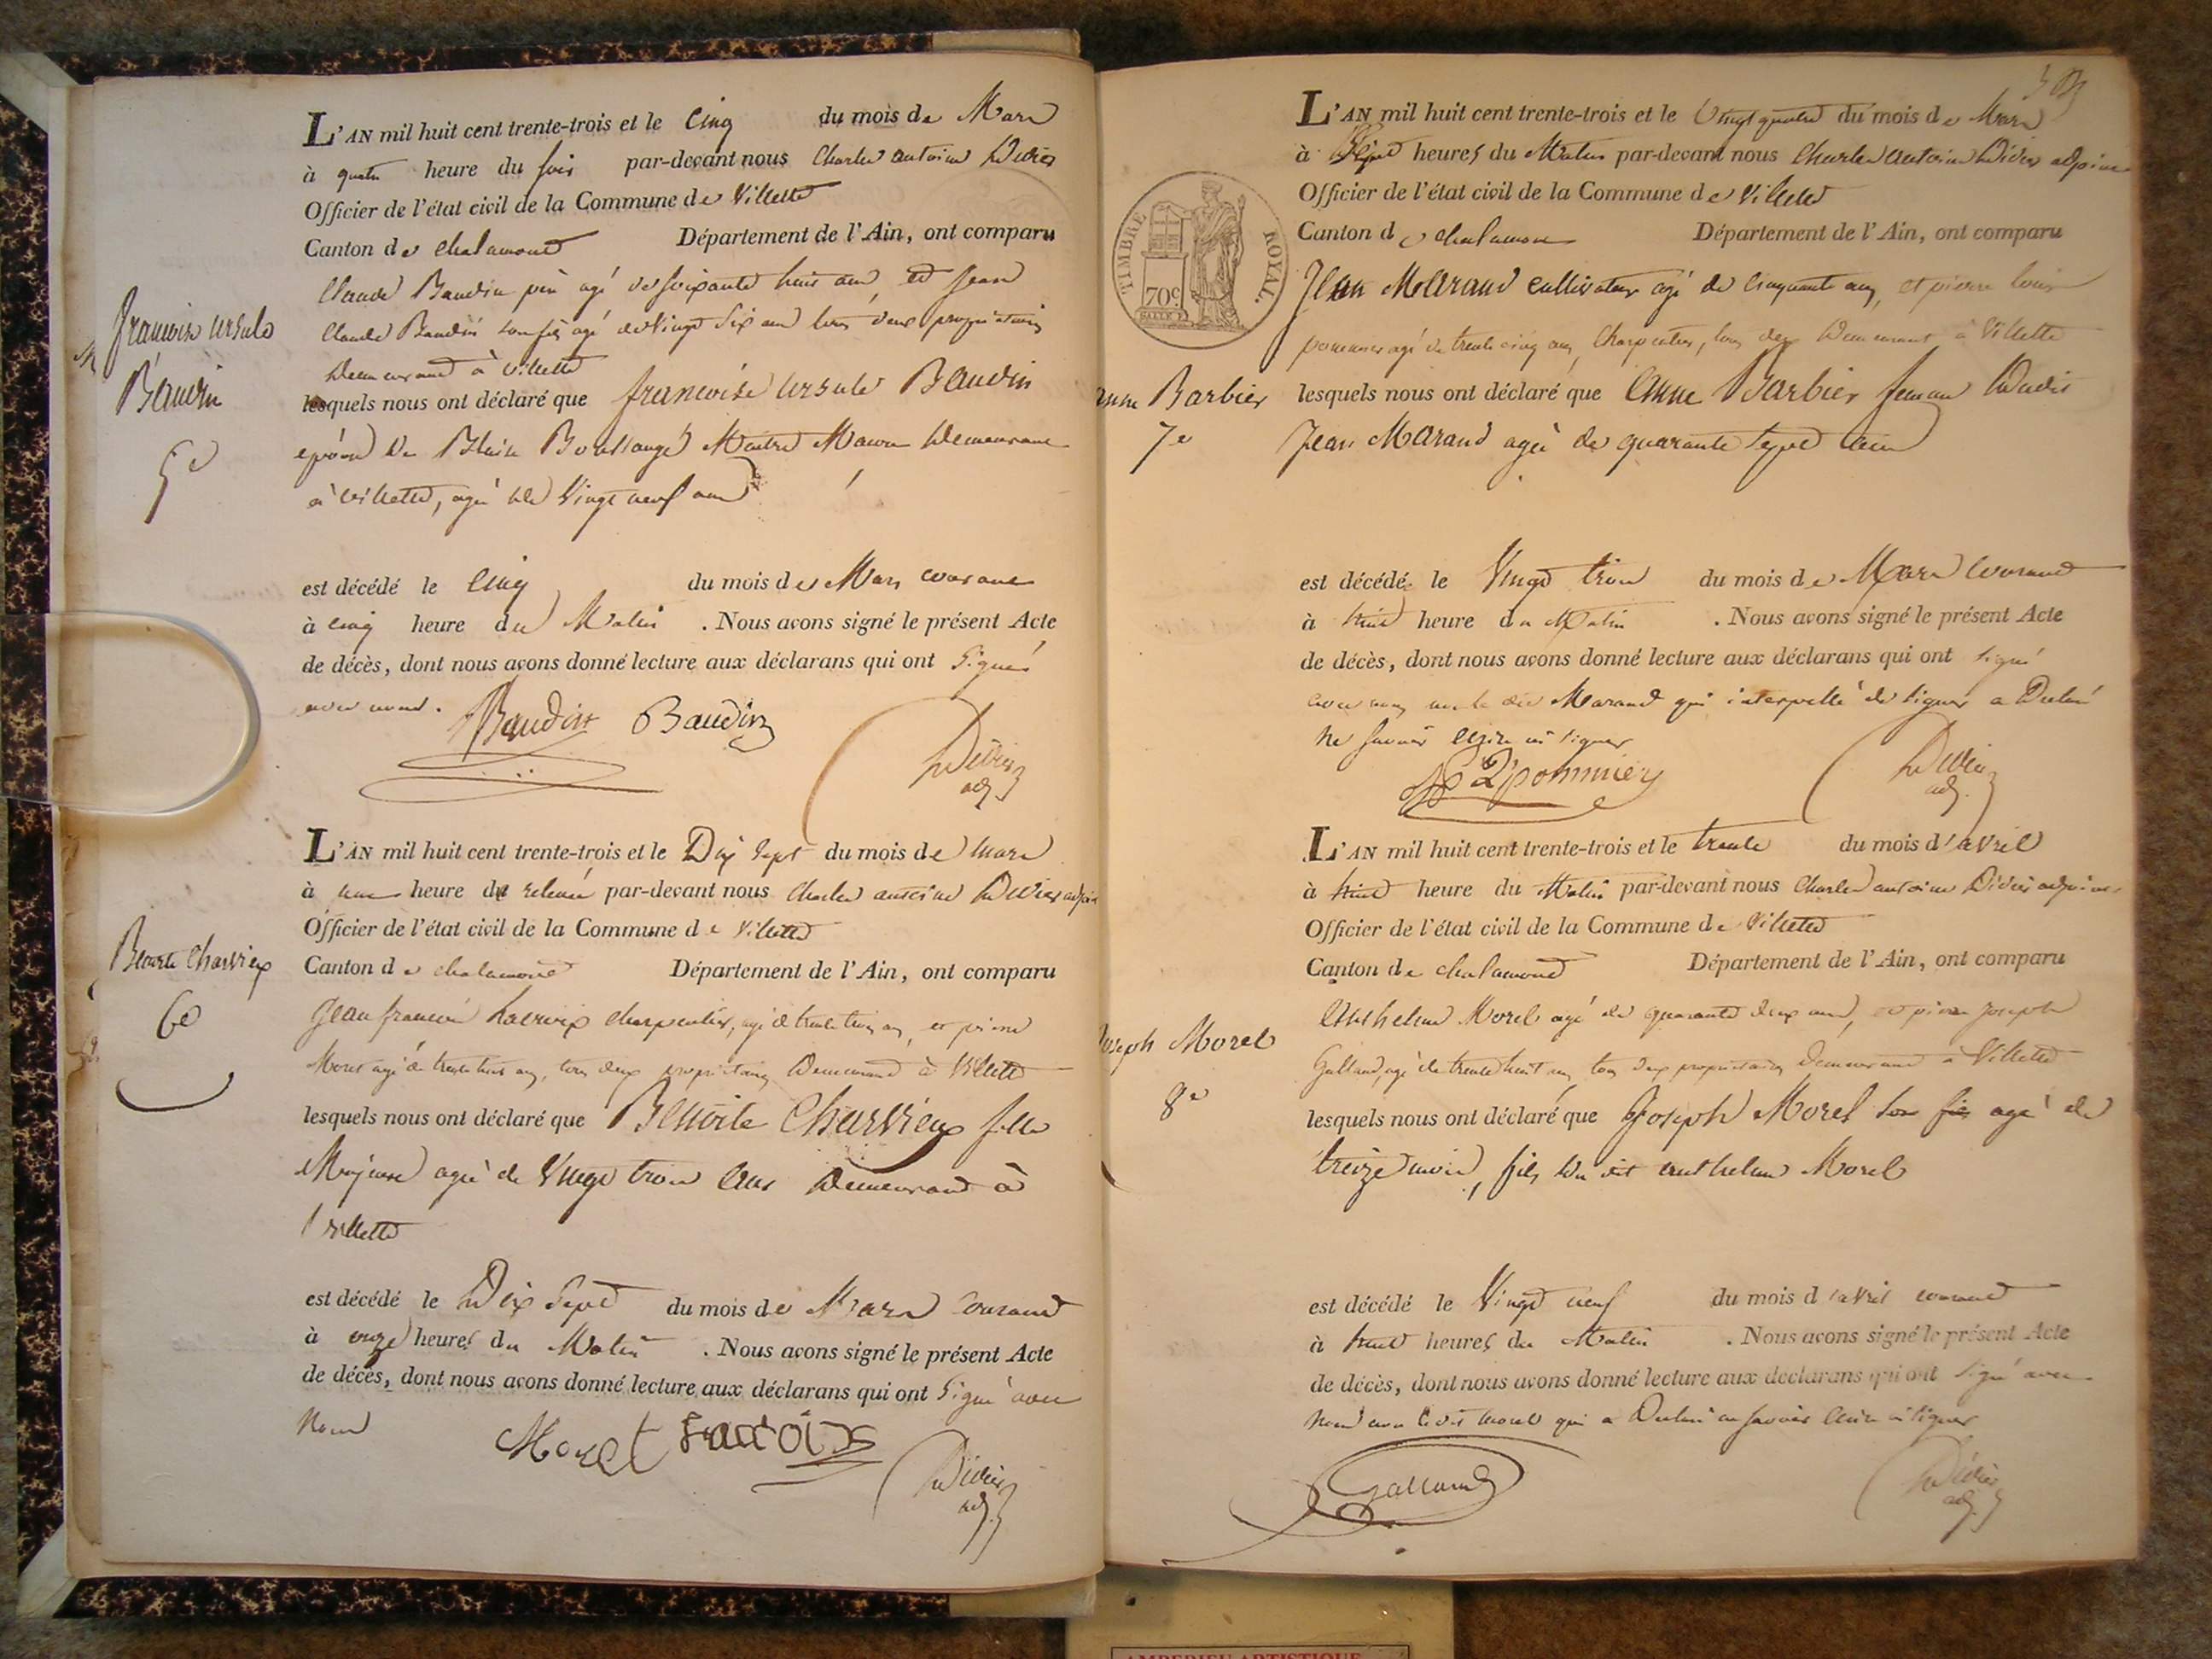 L'AN mil huit cent trente-trois et le Cinq du mois de Mars
à quatre heure du soir par-devant nous Charles antoine Didier
Officier de l'état civil de la Commune de Villette
Canton de Chalamont Département de l'Ain, ont comparu
Claude Baudin père agé de soixante huit ans, et Jean
Claude Baudin son fils agé de Vingt Six ans tous deux propriétaires
Demeurand à Villette
françoise ursule
Baudin
5e
lesquels nous ont déclaré que françoise ursule Baudin
épouse De Blaise Boullangé Maitre Maçon Demeurant
à Villette, agée de Vingt neuf ans
est décédé le Cinq du mois de Mars courant
à cinq heure du Matin . Nous avons signé le présent Acte
de décès, dont nous avons donné lecture aux déclarans qui ont Signés
avec nous. Baudin Baudin
Didier
adj
L'AN mil huit cent trente-trois et le Dix Sept du mois de Mars
à une heure de relevée par-devant nous Charles antoine Didier adjoint
Officier de l'état civil de la Commune de Villette
Canton de Chalamont Département de l'Ain, ont comparu
Benoite Charvieux
6e
Jean françois Lacroix Charpentier, agé de trente trois ans, et pierre
Moret agé de trente huit ans, tous deux propriétaires Demeurand à Villette
lesquels nous ont déclaré que Benoite Charvieux fille
Majeure agée de Vingt trois ans Demeurand à
Villette
est décédé le Dix Sept du mois de Mars Courand
à onze heures du Matin . Nous avons signé le présent Acte
de décès, dont nous avons donné lecture aux déclarans qui ont Signé avec
Nous Moret
Didier
adj
L'AN mil huit cent trente-trois et le Vingt quatre du mois de Mars
à Sept heures du Matin par-devant nous Charles antoine Didier adjoint
Officier de l'état civil de la Commune de Villette
Canton de Chalamont Département de l'Ain, ont comparu
TIMBRE ROYAL.
70c
Jean Marand cultivateur agé de Cinquante ans, et pierre louis
pommier agé de trente cinq ans, Charpentier, tous deux Demeurant à Villette
anne Barbier
7e
lesquels nous ont déclaré que Anne Barbier femme Dudit
Jean Marand agée de quarante Sept ans
est décédée le Vingt trois du mois de Mars Courand
à huit heure du Matin . Nous avons signé le présent Acte
de décès, dont nous avons donné lecture aux déclarans qui ont signé
avec nous Marand qui interpellé de signer a Déclaré
Ne savoir Ecrire ni signer
pommier
Didier
adj.
L'AN mil huit cent trente-trois et le trente du mois d'avril
à huit heure du Matin par-devant nous Charles antoine Didier adjoint
Officier de l'état civil de la Commune de Villette
Canton de Chalamont Département de l'Ain, ont comparu
Anthelme Morel agé de quarante deux ans, et pierre Joseph
Galland, agé de trente huit ans tous deux propriétaires Demeurand à Villette
Joseph Morel
8e
lesquels nous ont déclaré que Joseph Morel son fis agé de
treize mois, fils du dit anthelme Morel
est décédé le Vingt neuf du mois d'avril courand
à huit heures du Matin . Nous avons signé le présent Acte
de décès, dont nous avons donné lecture aux déclarans qui ont signé avec
Nous non le dit Morel qui a Déclaré ne savoir Ecrire ni signer
Galland
Didier
adj
AMBERIEU ARTISTIQUE